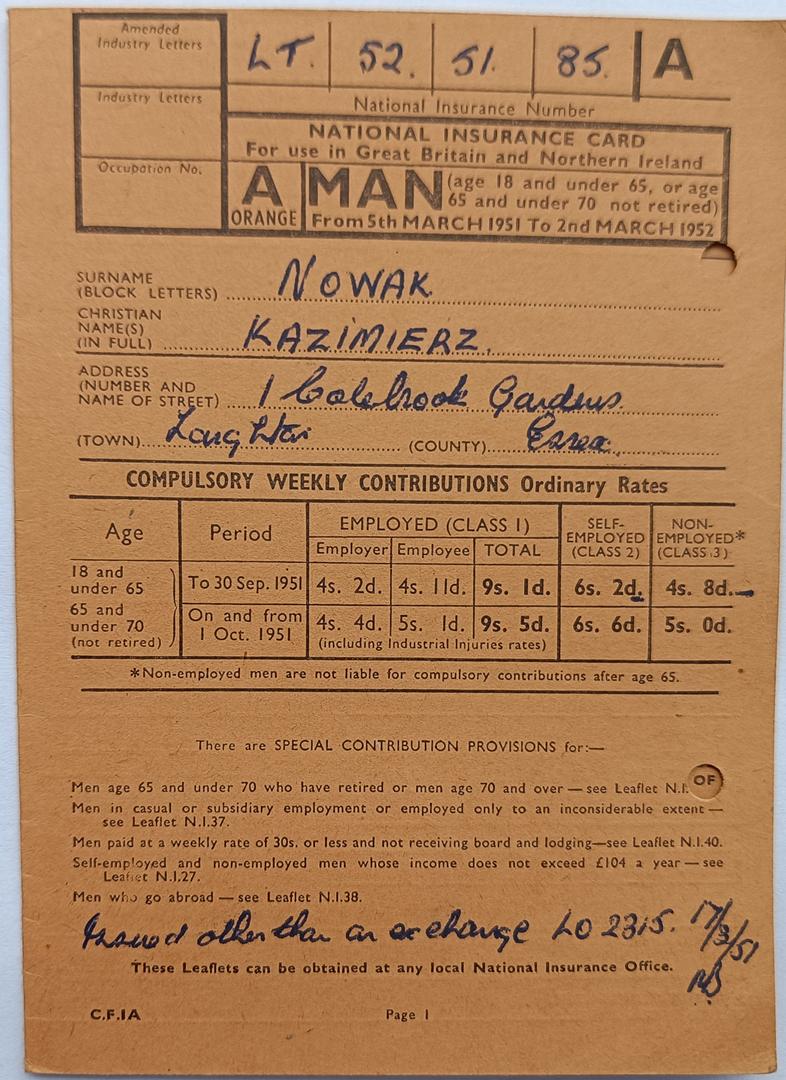 Amended
Industry Letters
LT. 52. 51. 85. A
Industry Letters
National Insurance Number
NATIONAL INSURANCE CARD
For use in Great Britain and Northern Ireland
Occupation No.
A
ORANGE
MAN (age 18 and under 65, or age
65 and under 70 not retired)
From 5th MARCH 1951 To 2nd MARCH 1952
SURNAME
(BLOCK LETTERS) NOWAK
CHRISTIAN
NAME(S)
(IN FULL) KAZIMIERZ.
ADDRESS
(NUMBER AND
NAME OF STREET) 1 Colebrook Gardens.
(TOWN) Loughton (COUNTY) Essex.
COMPULSORY WEEKLY CONTRIBUTIONS Ordinary Rates
Age Period EMPLOYED (CLASS 1) SELF-EMPLOYED (CLASS 2) NON-EMPLOYED* (CLASS 3)
Employer Employee TOTAL
18 and
under 65 To 30 Sep. 1951 4s. 2d. 4s. 11d. 9s. 1d. 6s. 2d. 4s. 8d.
65 and
under 70
(not retired) On and from 1 Oct. 1951 4s. 4d. 5s. 1d. 9s. 5d. 6s. 6d. 5s. 0d.
(including Industrial Injuries rates)
*Non-employed men are not liable for compulsory contributions after age 65.
There are SPECIAL CONTRIBUTION PROVISIONS for:—
Men age 65 and under 70 who have retired or men age 70 and over — see Leaflet N.I. OF
Men in casual or subsidiary employment or employed only to an inconsiderable extent —
see Leaflet N.I.37.
Men paid at a weekly rate of 30s. or less and not receiving board and lodging—see Leaflet N.I.40.
Self-employed and non-employed men whose income does not exceed £104 a year — see
Leaflet N.I.27.
Men who go abroad — see Leaflet N.I.38.
Issued other than an exchange LO 2315. 17/3/51
These Leaflets can be obtained at any local National Insurance Office.
C.F.1A Page 1